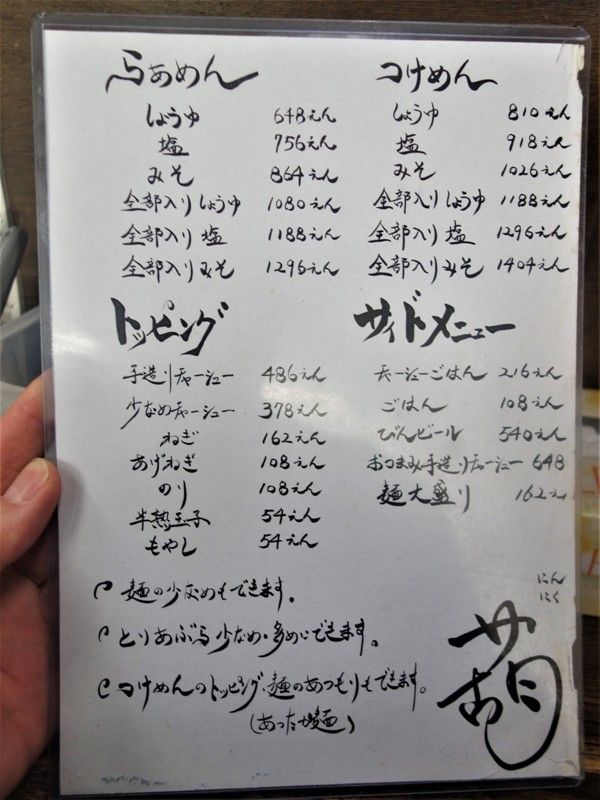 らぁめん
しょうゆ 648えん
塩 756えん
みそ 864えん
全部入りしょうゆ 1080えん
全部入り塩 1188えん
全部入りみそ 1296えん
つけめん
しょうゆ 810えん
塩 918えん
みそ 1026えん
全部入りしょうゆ 1188えん
全部入り塩 1296えん
全部入りみそ 1404えん
トッピング
手造りチャーシュー 486えん
少なめチャーシュー 378えん
ねぎ 162えん
あげねぎ 108えん
のり 108えん
半熟玉子 54えん
もやし 54えん
サイドメニュー
チャーシューごはん 216えん
ごはん 108えん
びんビール 540えん
おつまみ手造りチャーシュー 648
麺大盛り 162え
麺の少なめもできます。
とりあぶら少なめ・多めにできます。
つけめんのトッピング、麺のあつもりもできます。
(あったか麺)
にん
にく